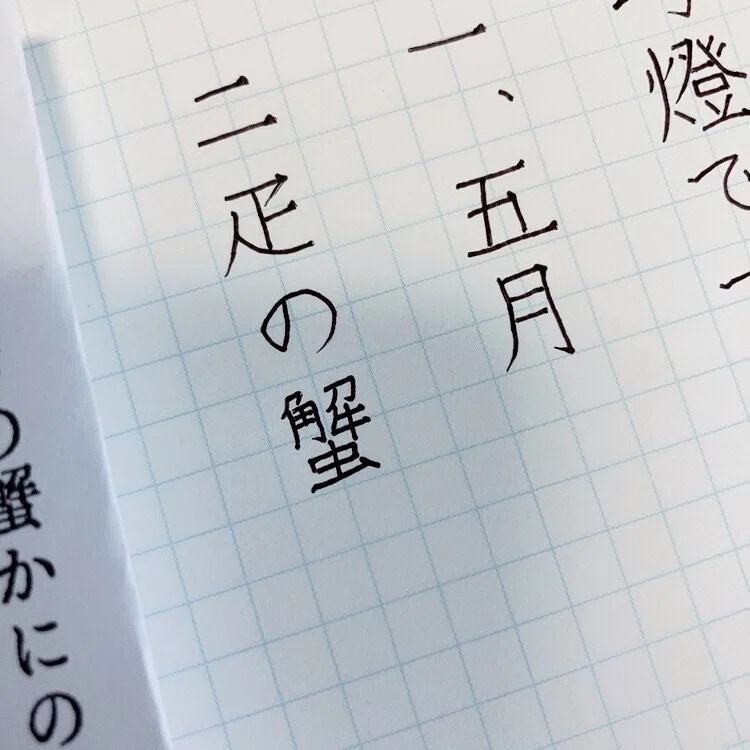 燈で
一、五月
二疋の蟹
の蟹かにの